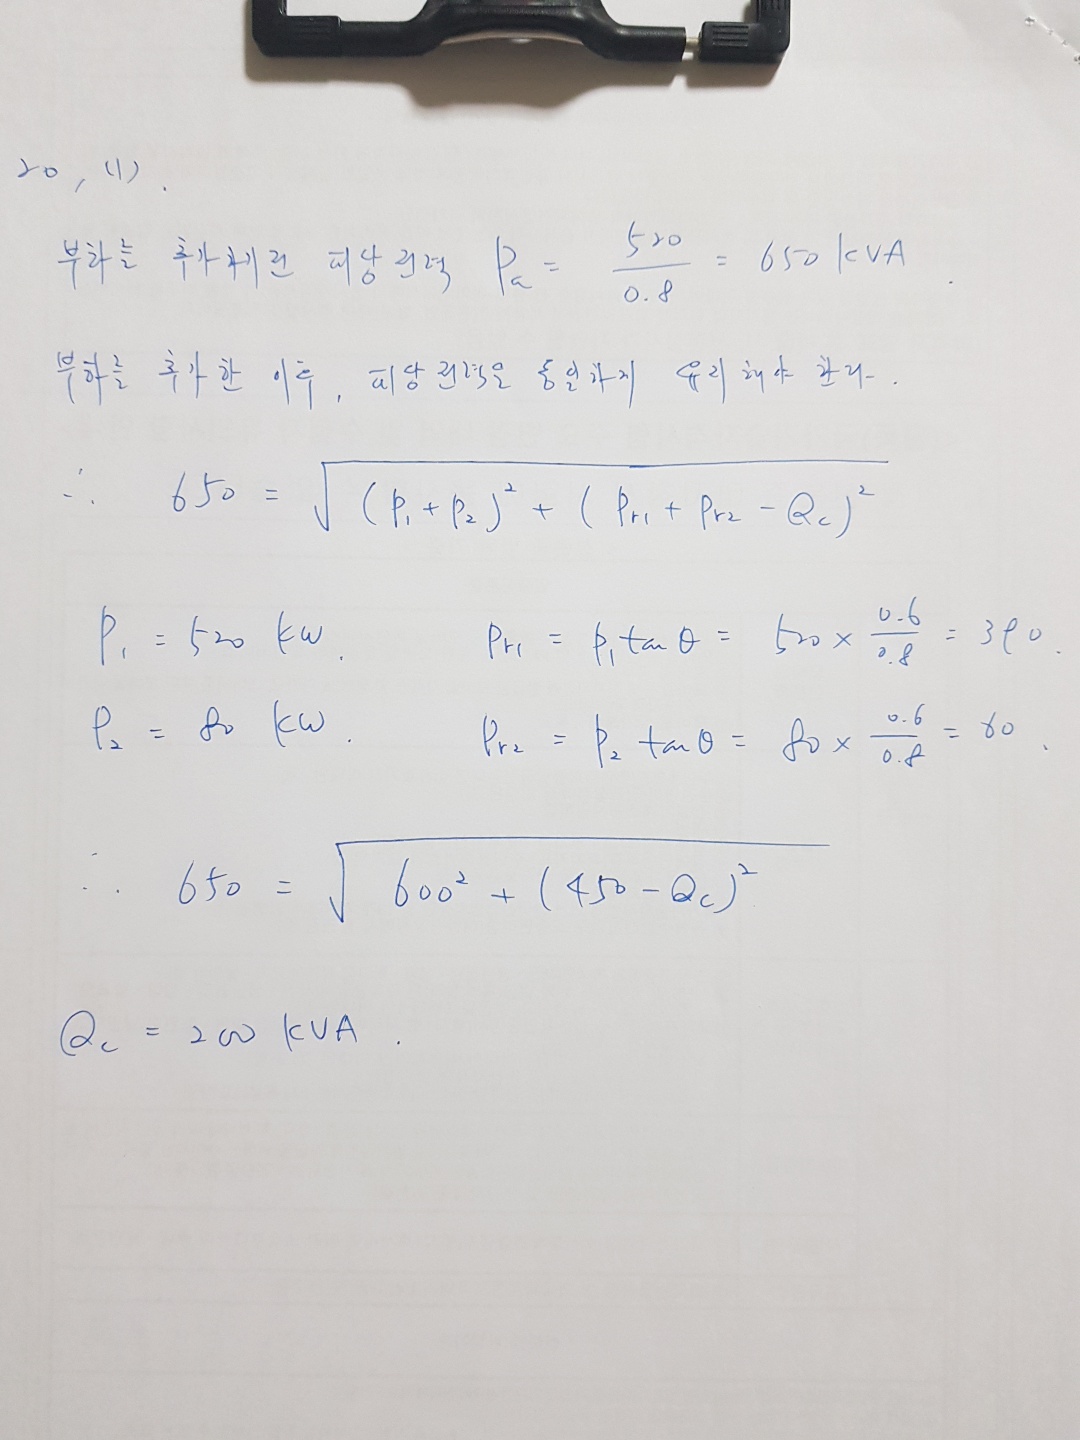 20, (1).
부하를 추가하기 전 피상전력 Pa = 520/0.8 = 650 kVA.
부하를 추가한 이후, 피상전력은 동일하게 유지해야 한다.
∴ 650 = √((P₁ + P₂)² + (Pr₁ + Pr₂ - Qc)²)
P₁ = 520 kW. Pr₁ = P₁ tan θ = 520 × 0.6/0.8 = 390.
P₂ = 80 kW. Pr₂ = P₂ tan θ = 80 × 0.6/0.8 = 60.
∴ 650 = √(600² + (450 - Qc)²)
Qc = 200 kVA.